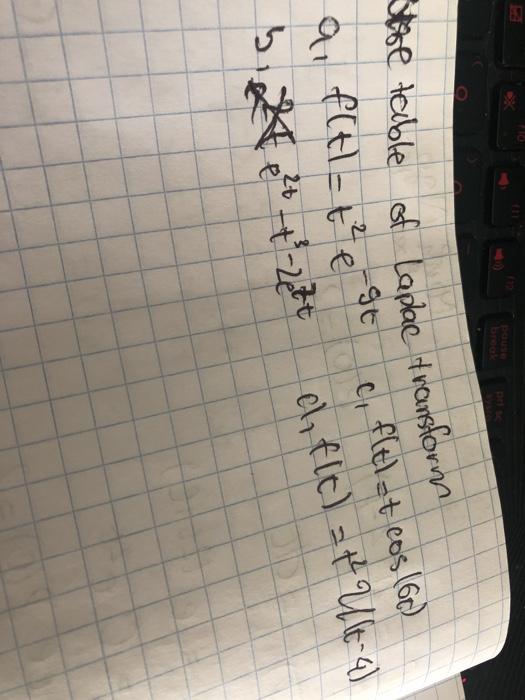 Use table of Laplac transform
a, f(t) = t² e^{-9t}
b, e^{2t} - t³ - 2e^{7t}
c, f(t) = t cos(6t)
d, f(t) = t² U(t-4)
pause
break
prt sc